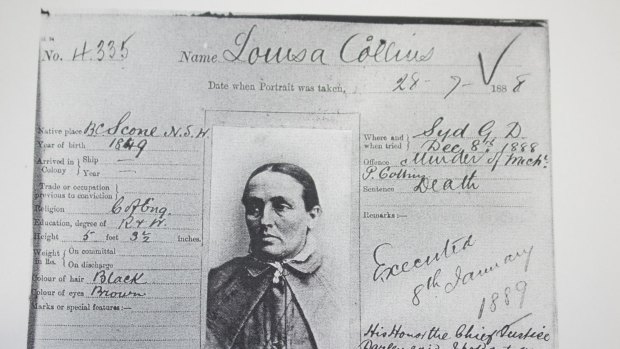 No. 4.335 Name Louisa Collins
Date when Portrait was taken, 28-7-1888
Native place BC Scone N.S.W
Year of birth 1849
Arrived in Colony } Ship
Year
Trade or occupation previous to conviction }
Religion C of Eng.
Education, degree of R & W.
Height 5 feet 3½ inches.
Weight in lbs. } On committal
On discharge
Colour of hair Black
Colour of eyes Brown
Marks or special features:—
Where and when tried } Syd G. D.
Dec 8th 1888
Offence Murder of Mich.
P. Collins
Sentence Death
Remarks:—
Executed
8th January
1889
His Honor the Chief Justice